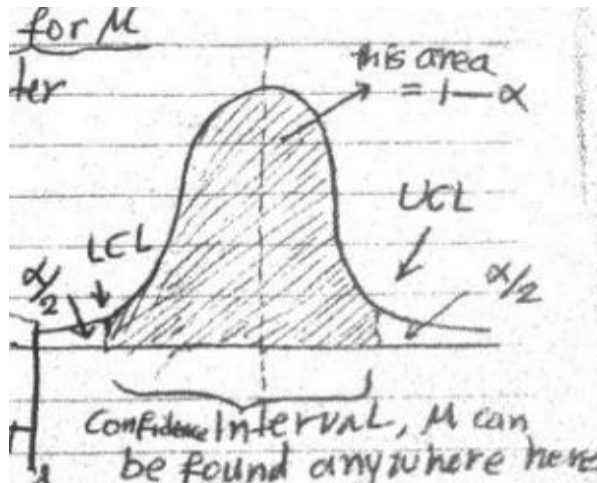 for M
ter
this area
= 1-α
UCL
LCL
α/2
α/2
Confidence Interval, M can
be found anywhere here